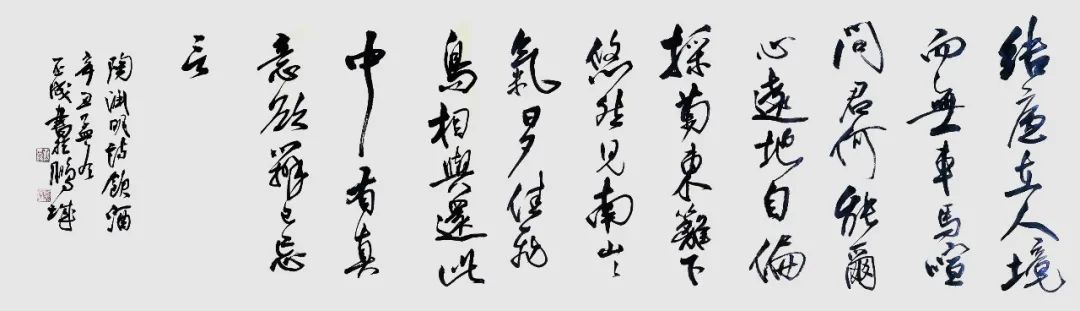 結廬在人境
而無車馬喧
問君何能爾
心遠地自偏
採菊東籬下
悠然見南山〻
氣日夕佳飛
鳥相與還此
中有真
意欲辯已忘
言
陶淵明詩飲酒
辛丑孟冬
正成書於鵬城